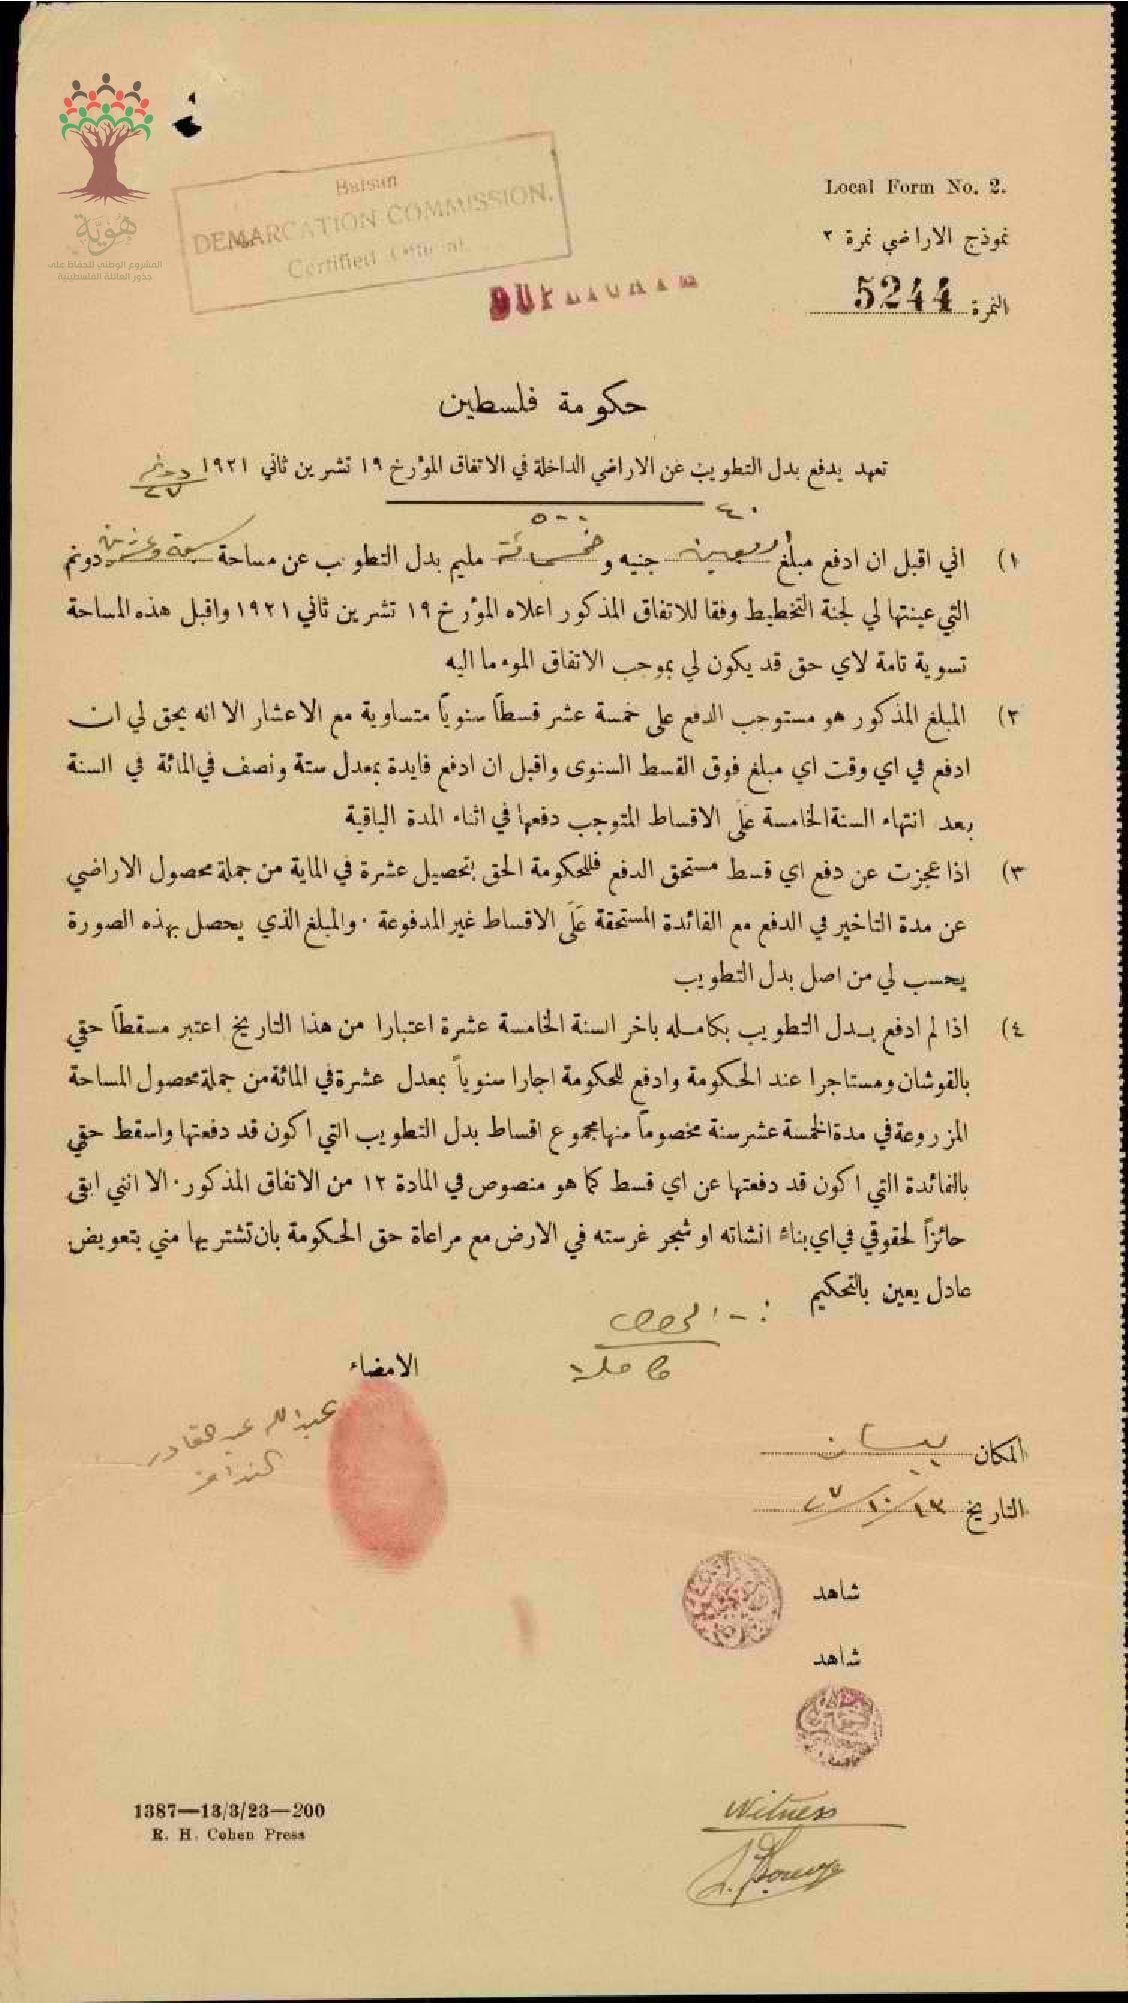 هُويَّة
المشروع الوطني للحفاظ على
جذور العائلة الفلسطينية
Baisan
DEMARCATION COMMISSION.
Certified
DUPLICATE
Local Form No. 2.
نموذج الاراضي نمرة ٢
النمرة 5244
حكومة فلسطين
تعهد بدفع بدل التطويب عن الاراضي الداخلة في الاتفاق المؤرخ ١٩ تشرين ثاني ١٩٢١ دونم
٢٧
٤٠ ٥٠٠
١) اني اقبل ان ادفع مبلغ أربعين جنيه و خمسمائة مليم بدل التطويب عن مساحة سبعة وعشرين دونم
التي عينتها لي لجنة التخطيط وفقا للاتفاق المذكور اعلاه المؤرخ ١٩ تشرين ثاني ١٩٢١ واقبل هذه المساحة
تسوية تامة لاي حق قد يكون لي بموجب الاتفاق الموء ما اليه
٢) المبلغ المذكور هو مستوجب الدفع على خمسة عشر قسطًا سنويًا متساوية مع الاعشار الا انه يحق لي ان
ادفع في اي وقت اي مبلغ فوق القسط السنوى واقبل ان ادفع فايدة بمعدل ستة ونصف في المائة في السنة
بعد انتهاء السنة الخامسة عَلَى الاقساط المتوجب دفعها في اثناء المدة الباقية
٣) اذا عجزت عن دفع اي قسط مستحق الدفع فللحكومة الحق بتحصيل عشرة في الماية من جملة محصول الاراضي
عن مدة التاخير في الدفع مع الفائدة المستحقة عَلَى الاقساط غير المدفوعة . والمبلغ الذي يحصل بهذه الصورة
يحسب لي من اصل بدل التطويب
٤) اذا لم ادفع بدل التطويب بكامله باخر السنة الخامسة عشرة اعتبارا من هذا التاريخ اعتبر مسقطًا حقي
بالقوشان ومستاجرا عند الحكومة وادفع للحكومة اجارا سنوياً بمعدل عشرة في المائة من جملة محصول المساحة
المزروعة في مدة الخمسة عشر سنة مخصوماً منها مجموع اقساط بدل التطويب التي اكون قد دفعتها واسقط حقي
بالفائدة التي اكون قد دفعتها عن اي قسط كما هو منصوص في المادة ١٢ من الاتفاق المذكور . الا انني ابقى
حائزاً لحقوقي في اي بناء انشاته او شجر غرسته في الارض مع مراعاة حق الحكومة بان تشتريها مني بتعويض
عادل يعين بالتحكيم
الحصص
كاملة
الامضاء
عبدالله عبدالقادر
المكان بيسان
التاريخ
شاهد
شاهد
Witness
1387—13/3/23—200
R. H. Cohen Press